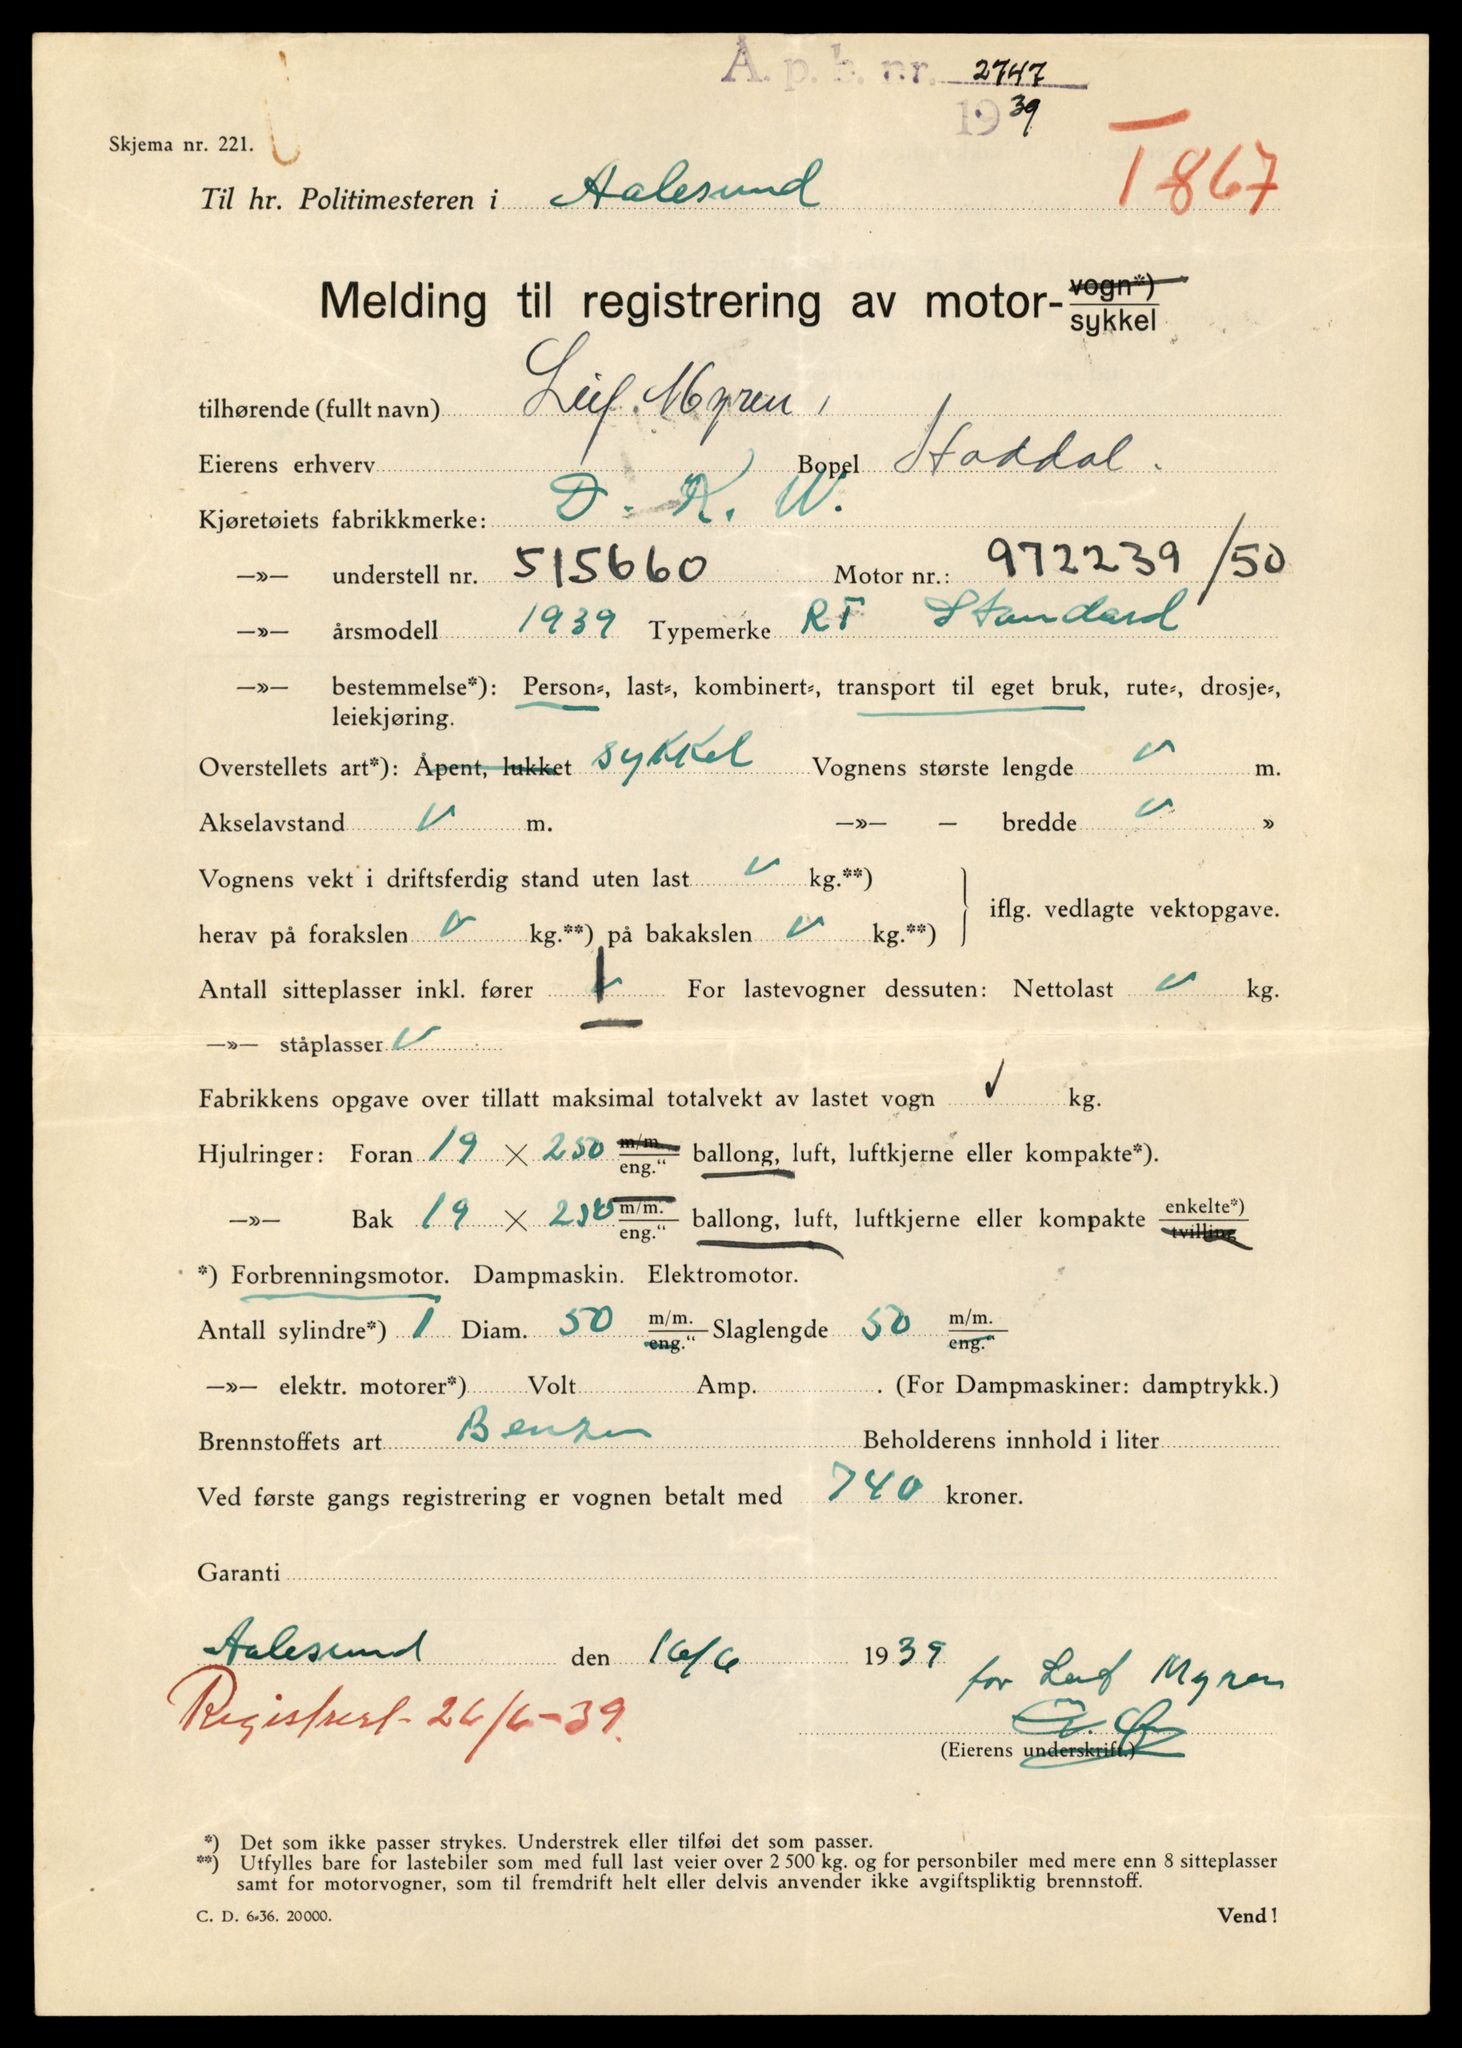 Å. p. k. nr. 2747
1939
Skjema nr. 221.
T 867
Til hr. Politimesteren i Aalesund
Melding til registrering av motor-vogn*)
sykkel
tilhørende (fullt navn) Leif Myren,
Eierens erhverv Bopel Stoddal.
Kjøretøiets fabrikkmerke: D. K. W.
—»— understell nr. 515660 Motor nr.: 972239/50
—»— årsmodell 1939 Typemerke RT Standard
—»— bestemmelse*): Person-, last-, kombinert-, transport til eget bruk, rute-, drosje-,
leiekjøring.
Overstellets art*): Åpent, lukket sykkel Vognens største lengde v m.
Akselavstand v m. —»— — bredde v »
Vognens vekt i driftsferdig stand uten last v kg.**)
iflg. vedlagte vektopgave.
herav på forakslen v kg.**) på bakakslen v kg.**)
Antall sitteplasser inkl. fører 1 For lastevogner dessuten: Nettolast v kg.
—»— ståplasser v
Fabrikkens opgave over tillatt maksimal totalvekt av lastet vogn v kg.
Hjulringer: Foran 19 × 250 m/m. eng.“ ballong, luft, luftkjerne eller kompakte*).
—»— Bak 19 × 250 m/m. eng.“ ballong, luft, luftkjerne eller kompakte enkelte*) tvilling
*) Forbrenningsmotor. Dampmaskin. Elektromotor.
Antall sylindre*) 1 Diam. 50 m/m. eng.“ Slaglengde 50 m/m. eng.“
—»— elektr. motorer*) Volt Amp. . (For Dampmaskiner: damptrykk.)
Brennstoffets art Benzin Beholderens innhold i liter
Ved første gangs registrering er vognen betalt med 740 kroner.
Garanti
Aalesund den 16/6 1939
for Leif Myren
Registrert 26/6-39.
(Eierens underskrift.)
*) Det som ikke passer strykes. Understrek eller tilføi det som passer.
**) Utfylles bare for lastebiler som med full last veier over 2 500 kg. og for personbiler med mere enn 8 sitteplasser
samt for motorvogner, som til fremdrift helt eller delvis anvender ikke avgiftspliktig brennstoff.
C. D. 6-36. 20000.
Vend!